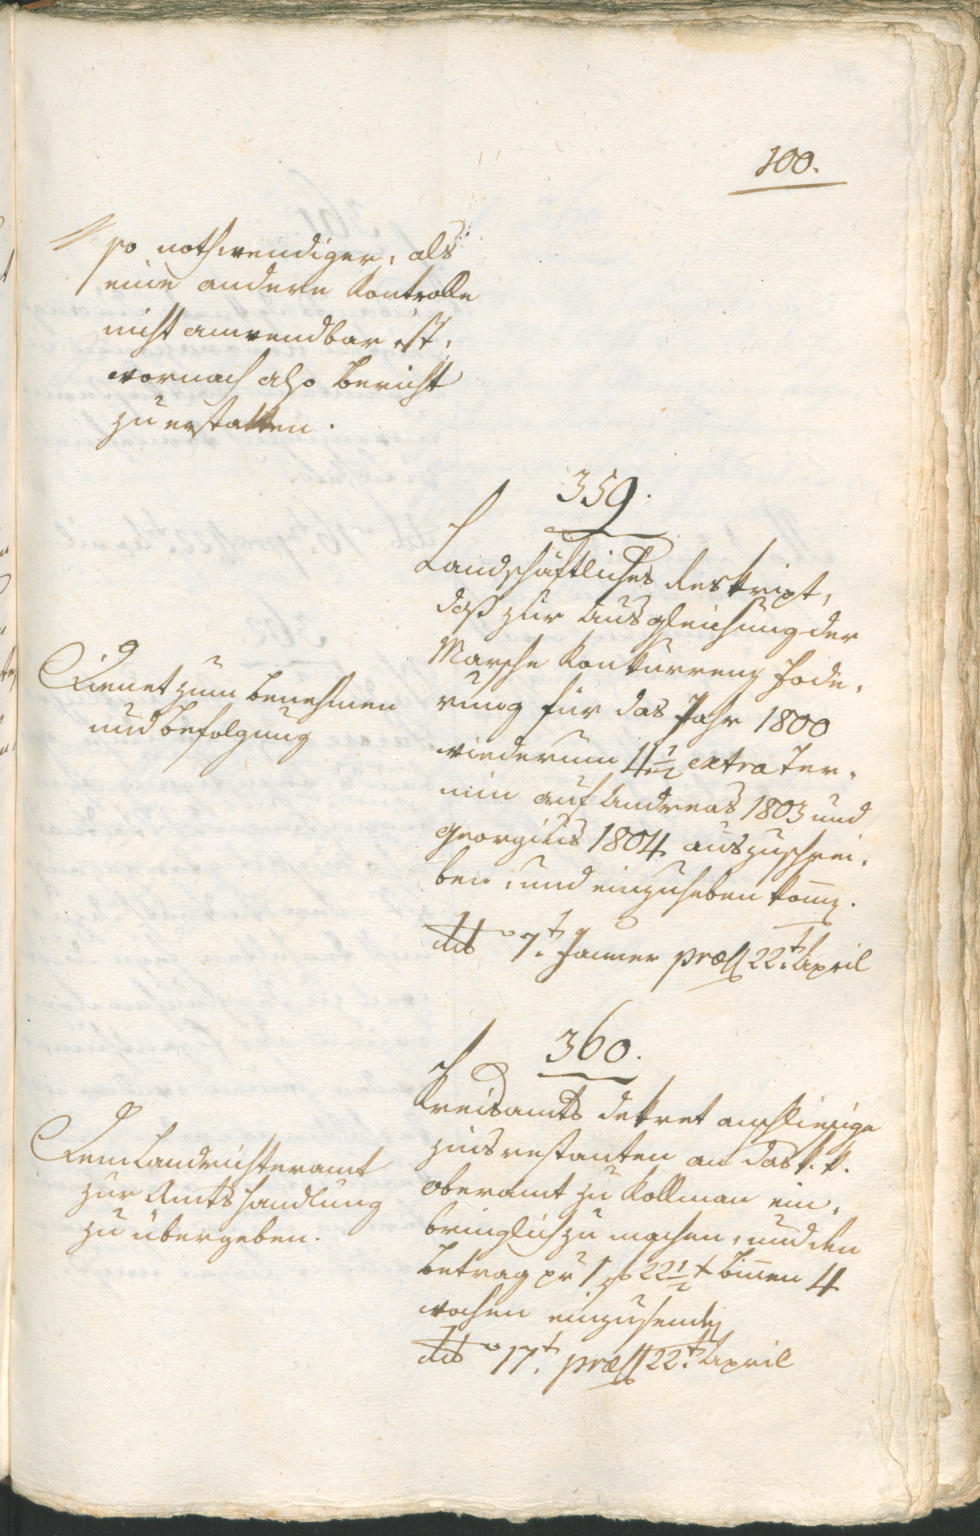 100.
so nothwendiger, als
eine andere Kontrolle
nicht anwendbar ist,
wornach also Bericht
zu erstatten.
359.
Landschäftliches Reskript,
daß zur Ausgleichung der
Marsche Konkurrenz Fode¬
rung für das Jahr 1800
wiederum 4 1/2 extra Ter¬
min auf Andreas 1803 und
Georgius 1804 auszuschrei¬
ben, und einzuheben kom̅.
ddo 7t. Jänner præs 22t. April
Dienet zum Benehmen
und Befolgung
360.
Kreisamts Dekret
Zinsrestanten an das k. k.
Oberamt zu Kollman ein¬
bringlich zu machen, und den
Betrag pr 1 f 22 1/2 x binnen 4
Wochen einzusenden
ddo 17t. præs 22t. April
Dem Landrichteramt
zur Amtshandlung
zu übergeben.